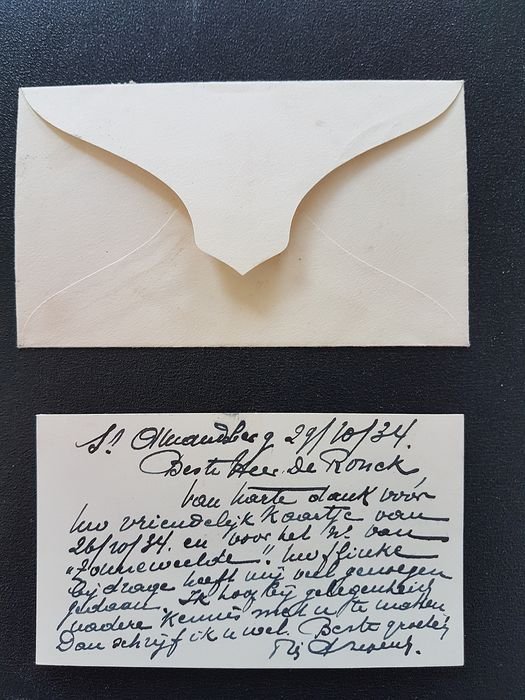 St Amandsberg 29/10/34.
Beste Heer De Ronck
Van harte dank vóór
Uw vriendelijk Kaartje van
26/10/34. en voor het Nr. van
"Zonneweelde". Uw flinke
bijdrage heeft mij veel genoegen
gedaan. Ik hoop bij gelegenheid
nadere Kennis met u te maken
Dan schrijf ik u wel. Beste groeten